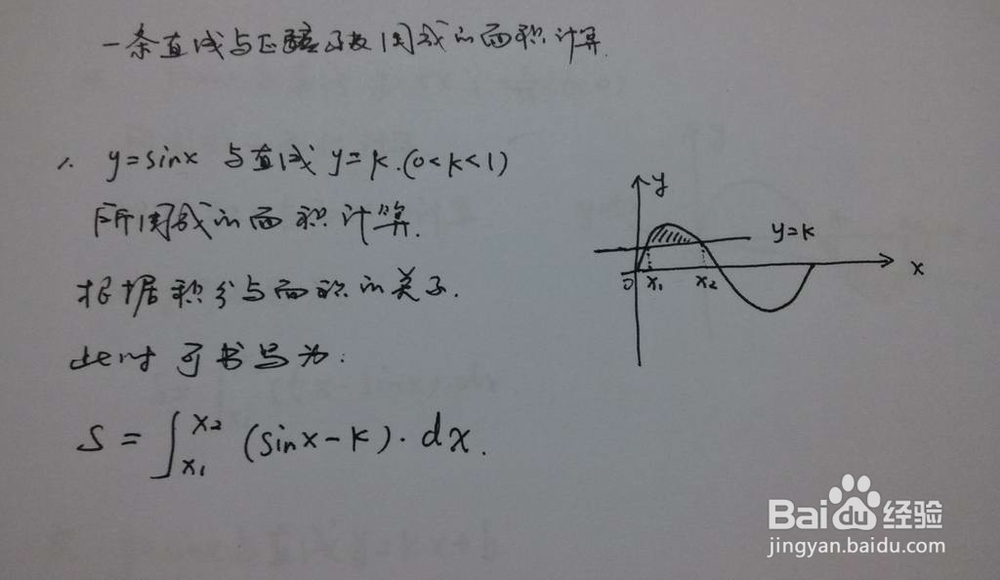 一条直线与正弦函数围成的面积计算.
1. y=sinx 与直线 y=k.(0<k<1)
所围成的面积计算.
根据积分与面积的关系.
此时可书写为:
S=∫_{x₁}^{x₂}(sinx-k)·dx.
y
y=k
0 x₁ x₂ x
Baidu经验
jingyan.baidu.com